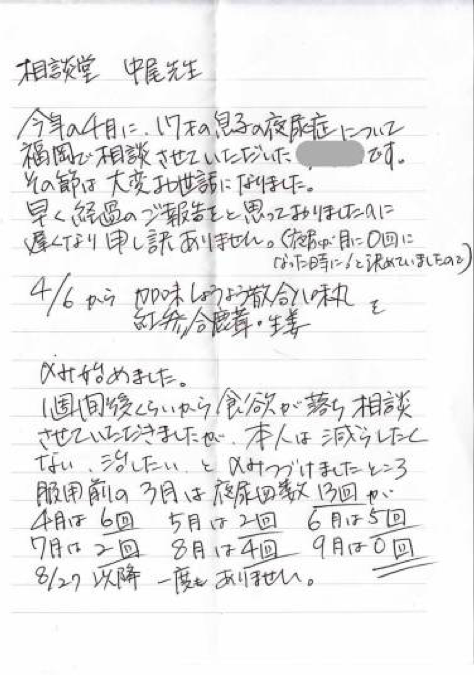 相談堂 中尾先生
今年の4月に、17才の息子の夜尿症について
福岡で相談させていただいた です。
その節は大変お世話になりました。
早く経過のご報告をと思っておりましたのに
遅くなり申し訳ありません。(夜尿が月に0回に
なった時に、と決めていましたので)
4/6から 加味しょうよう散合八味丸 を
紅参合鹿茸・生姜
飲み始めました。
1週間後くらいから食欲が落ち相談
させていただきましたが、本人は減らしたく
ない、治したい、と飲みつづけましたところ
服用前の3月は夜尿回数13回が
4月は6回 5月は2回 6月は5回
7月は2回 8月は4回 9月は0回
8/27以降 一度もありません。